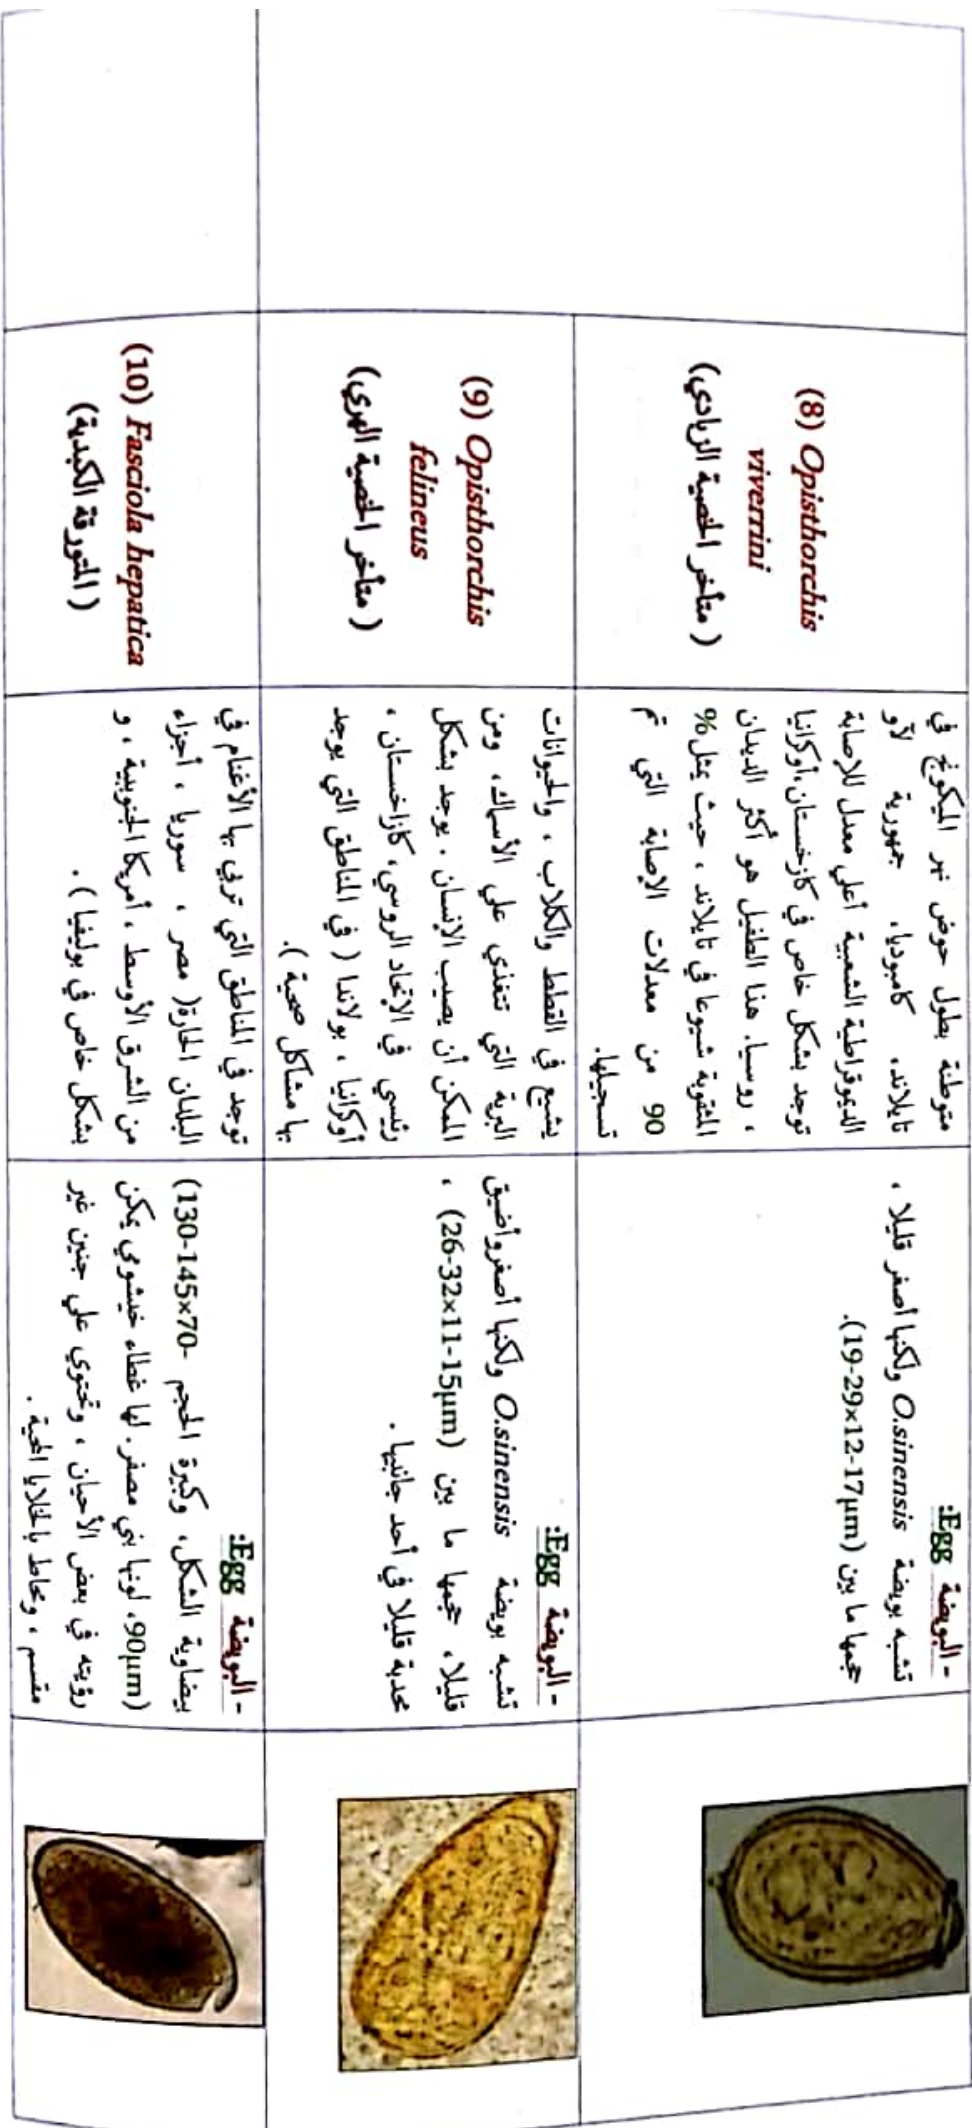 (8) Opisthorchis
viverrini
( متأخر الخصية الزبادي)
متوطنة بطول حوض نهر الميكونج في
تايلاند، كامبوديا، جمهورية لآو
الديموقراطية الشعبية أعلي معدل للإصابة
توجد بشكل خاص في كازخستان،أوكرانيا
، روسيا. هذا الطفيل هو أكثر الديدان
المثقوبة شيوعا في تايلاند ، حيث يمثل %
90 من معدلات الإصابة التي تم
تسجيلها.
- البويضة Egg:
تشبه بويضة O.sinensis ولكنها أصغر قليلا ،
حجمها ما بين (19-29x12-17µm).
(9) Opisthorchis
felineus
( متأخر الخصية الهري)
يشيع في القطط والكلاب ، والحيوانات
البرية التي تتغذي علي الأسماك، ومن
الممكن أن يصيب الإنسان . يوجد بشكل
رئيسي في الإتحاد الروسي، كازاخستان ،
أوكرانيا ، بولاندا ( في المناطق التي يوجد
بها مشاكل صحية ).
- البويضة Egg:
تشبه بويضة O.sinensis ولكنها أصغروأضيق
قليلا، حجمها ما بين (26-32x11-15µm) ،
محدبة قليلا في أحد جانبيها .
(10) Fasciola hepatica
( المتورقة الكبدية)
توجد في المناطق التي تربي بها الأغنام في
البلدان الحارة( مصر ، سوريا ، أجزاء
من الشرق الأوسط ، أمريكا الجنوبية ، و
بشكل خاص في بوليفيا ) .
- البويضة Egg:
بيضاوية الشكل، وكبيرة الحجم (130-145x70-
90µm)، لونها بني مصفر. لها غطاء خيشومي يمكن
رؤيته في بعض الأحيان ، وتحتوي علي جنين غير
مقسم ، ومحاط بالخلايا المحية .